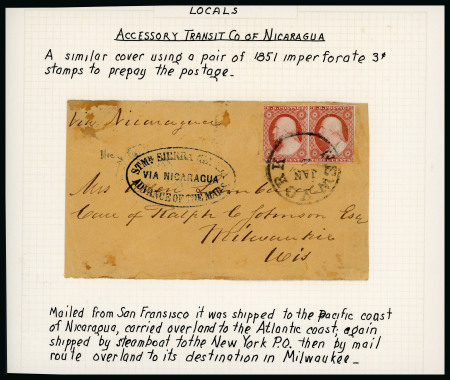 LOCALS
ACCESSORY TRANSIT CO OF NICARAGUA
A similar cover using a pair of 1851 imperforate 3¢
stamps to prepay the postage.
Via Nicaragua
STMR SIERRA NEVADA
VIA NICARAGUA
ADVANCE OF THE MAILS
NEW YORK
JAN
Mrs
Care of Ralph C Johnson Esq
Milwaukie
Wis
Mailed from San Fransisco it was shipped to the Pacific coast
of Nicaragua, carried overland to the Atlantic coast; again
shipped by steamboat to the New York P.O. then by mail
route overland to its destination in Milwaukee.